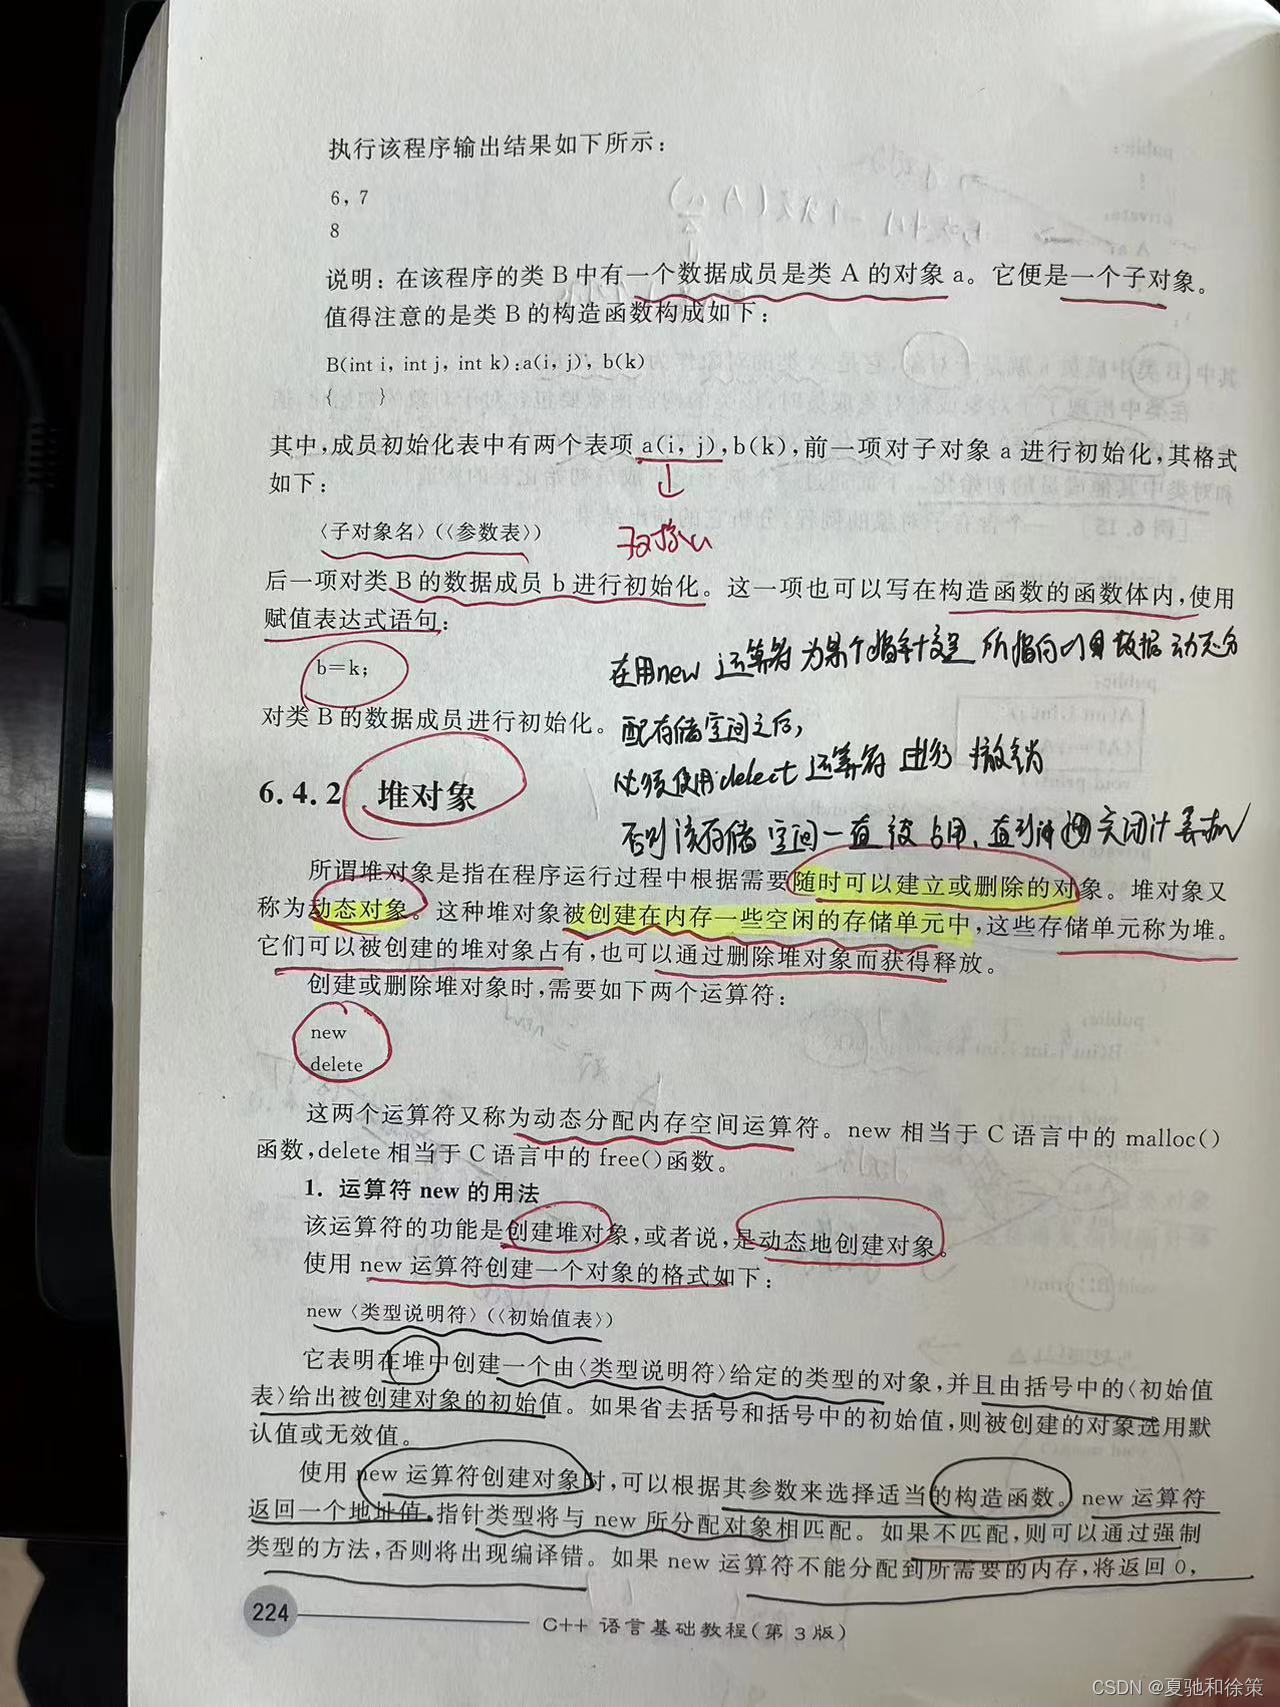 执行该程序输出结果如下所示：
6，7
8
说明：在该程序的类 B 中有一个数据成员是类 A 的对象 a。它便是一个子对象。
值得注意的是类 B 的构造函数构成如下：
B(int i, int j, int k):a(i, j), b(k)
{ }
其中，成员初始化表中有两个表项 a(i, j)，b(k)，前一项对子对象 a 进行初始化，其格式
如下：
〈子对象名〉(〈参数表〉)
子对象
后一项对类 B 的数据成员 b 进行初始化。这一项也可以写在构造函数的函数体内，使用
赋值表达式语句：
在用new 运算符为某个指针 所指向的 数据动态分
b=k;
对类 B 的数据成员进行初始化。
配存储空间之后，
必须使用delect运算符 进行 撤销
6.4.2 堆对象
否则该存储空间一直被占用、直到 关闭计算机
所谓堆对象是指在程序运行过程中根据需要随时可以建立或删除的对象。堆对象又
称为动态对象。这种堆对象被创建在内存一些空闲的存储单元中，这些存储单元称为堆。
它们可以被创建的堆对象占有，也可以通过删除堆对象而获得释放。
创建或删除堆对象时，需要如下两个运算符：
new
delete
这两个运算符又称为动态分配内存空间运算符。new 相当于 C 语言中的 malloc()
函数，delete 相当于 C 语言中的 free()函数。
1. 运算符 new 的用法
该运算符的功能是创建堆对象，或者说，是动态地创建对象。
使用 new 运算符创建一个对象的格式如下：
new〈类型说明符〉(〈初始值表〉)
它表明在堆中创建一个由〈类型说明符〉给定的类型的对象，并且由括号中的〈初始值
表〉给出被创建对象的初始值。如果省去括号和括号中的初始值，则被创建的对象选用默
认值或无效值。
使用 new 运算符创建对象时，可以根据其参数来选择适当的构造函数。new 运算符
返回一个地址值，指针类型将与 new 所分配对象相匹配。如果不匹配，则可以通过强制
类型的方法，否则将出现编译错。如果 new 运算符不能分配到所需要的内存，将返回 0，
224
C++ 语言基础教程(第 3 版)
CSDN @夏驰和徐策